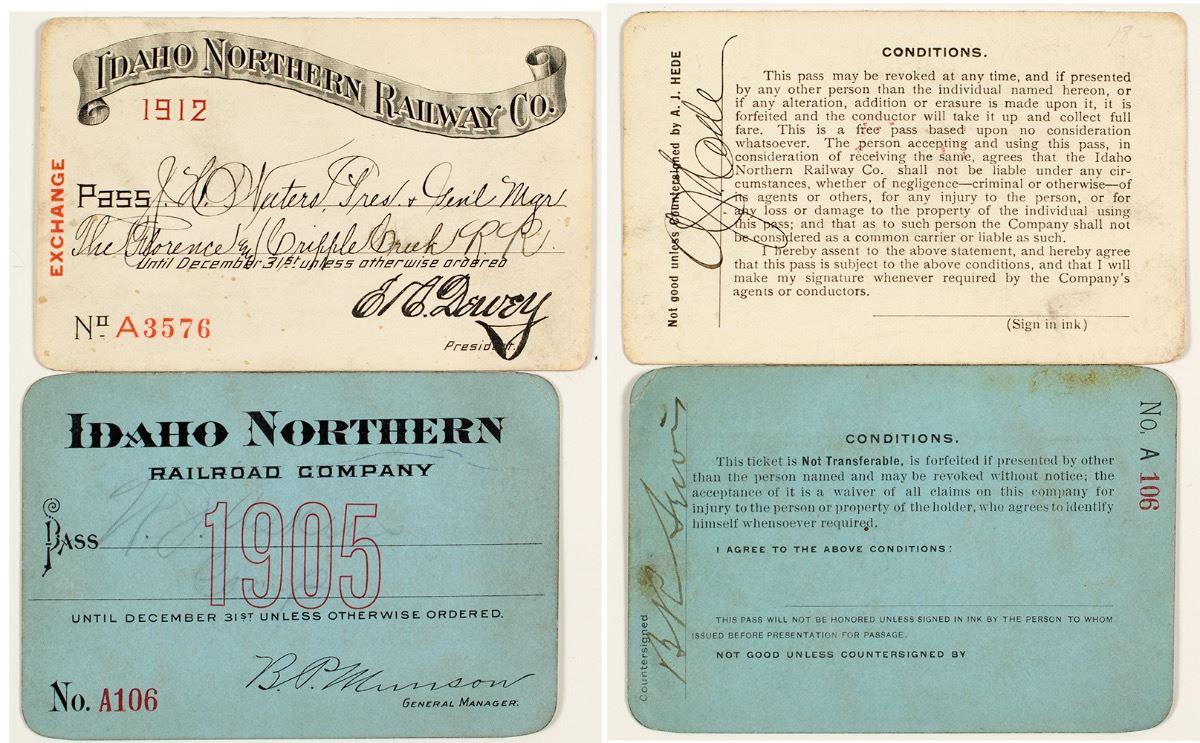 IDAHO NORTHERN RAILWAY CO.
1912
EXCHANGE
Pass J. H. Waters, Pres. & Genl Mgr.
The Florence & Cripple Creek RR.
Until December 31st unless otherwise ordered
E. A. Dewey
President.
No A3576
CONDITIONS.
This pass may be revoked at any time, and if presented
by any other person than the individual named hereon, or
if any alteration, addition or erasure is made upon it, it is
forfeited and the conductor will take it up and collect full
fare. This is a free pass based upon no consideration
whatsoever. The person accepting and using this pass, in
consideration of receiving the same, agrees that the Idaho
Northern Railway Co. shall not be liable under any cir-
cumstances, whether of negligence—criminal or otherwise—of
its agents or others, for any injury to the person, or for
any loss or damage to the property of the individual using
this pass; and that as to such person the Company shall not
be considered as a common carrier or liable as such.
I hereby assent to the above statement, and hereby agree
that this pass is subject to the above conditions, and that I will
make my signature whenever required by the Company's
agents or conductors.
(Sign in ink)
Not good unless Countersigned by A. J. HEDE
A J Hede
IDAHO NORTHERN
RAILROAD COMPANY
PASS
1905
UNTIL DECEMBER 31ST UNLESS OTHERWISE ORDERED.
B. P. Munson
GENERAL MANAGER.
No. A106
No. A 106
CONDITIONS.
This ticket is Not Transferable, is forfeited if presented by other
than the person named and may be revoked without notice; the
acceptance of it is a waiver of all claims on this company for
injury to the person or property of the holder, who agrees to identify
himself whensoever required.
I AGREE TO THE ABOVE CONDITIONS:
THIS PASS WILL NOT BE HONORED UNLESS SIGNED IN INK BY THE PERSON TO WHOM
ISSUED BEFORE PRESENTATION FOR PASSAGE.
NOT GOOD UNLESS COUNTERSIGNED BY
Countersigned